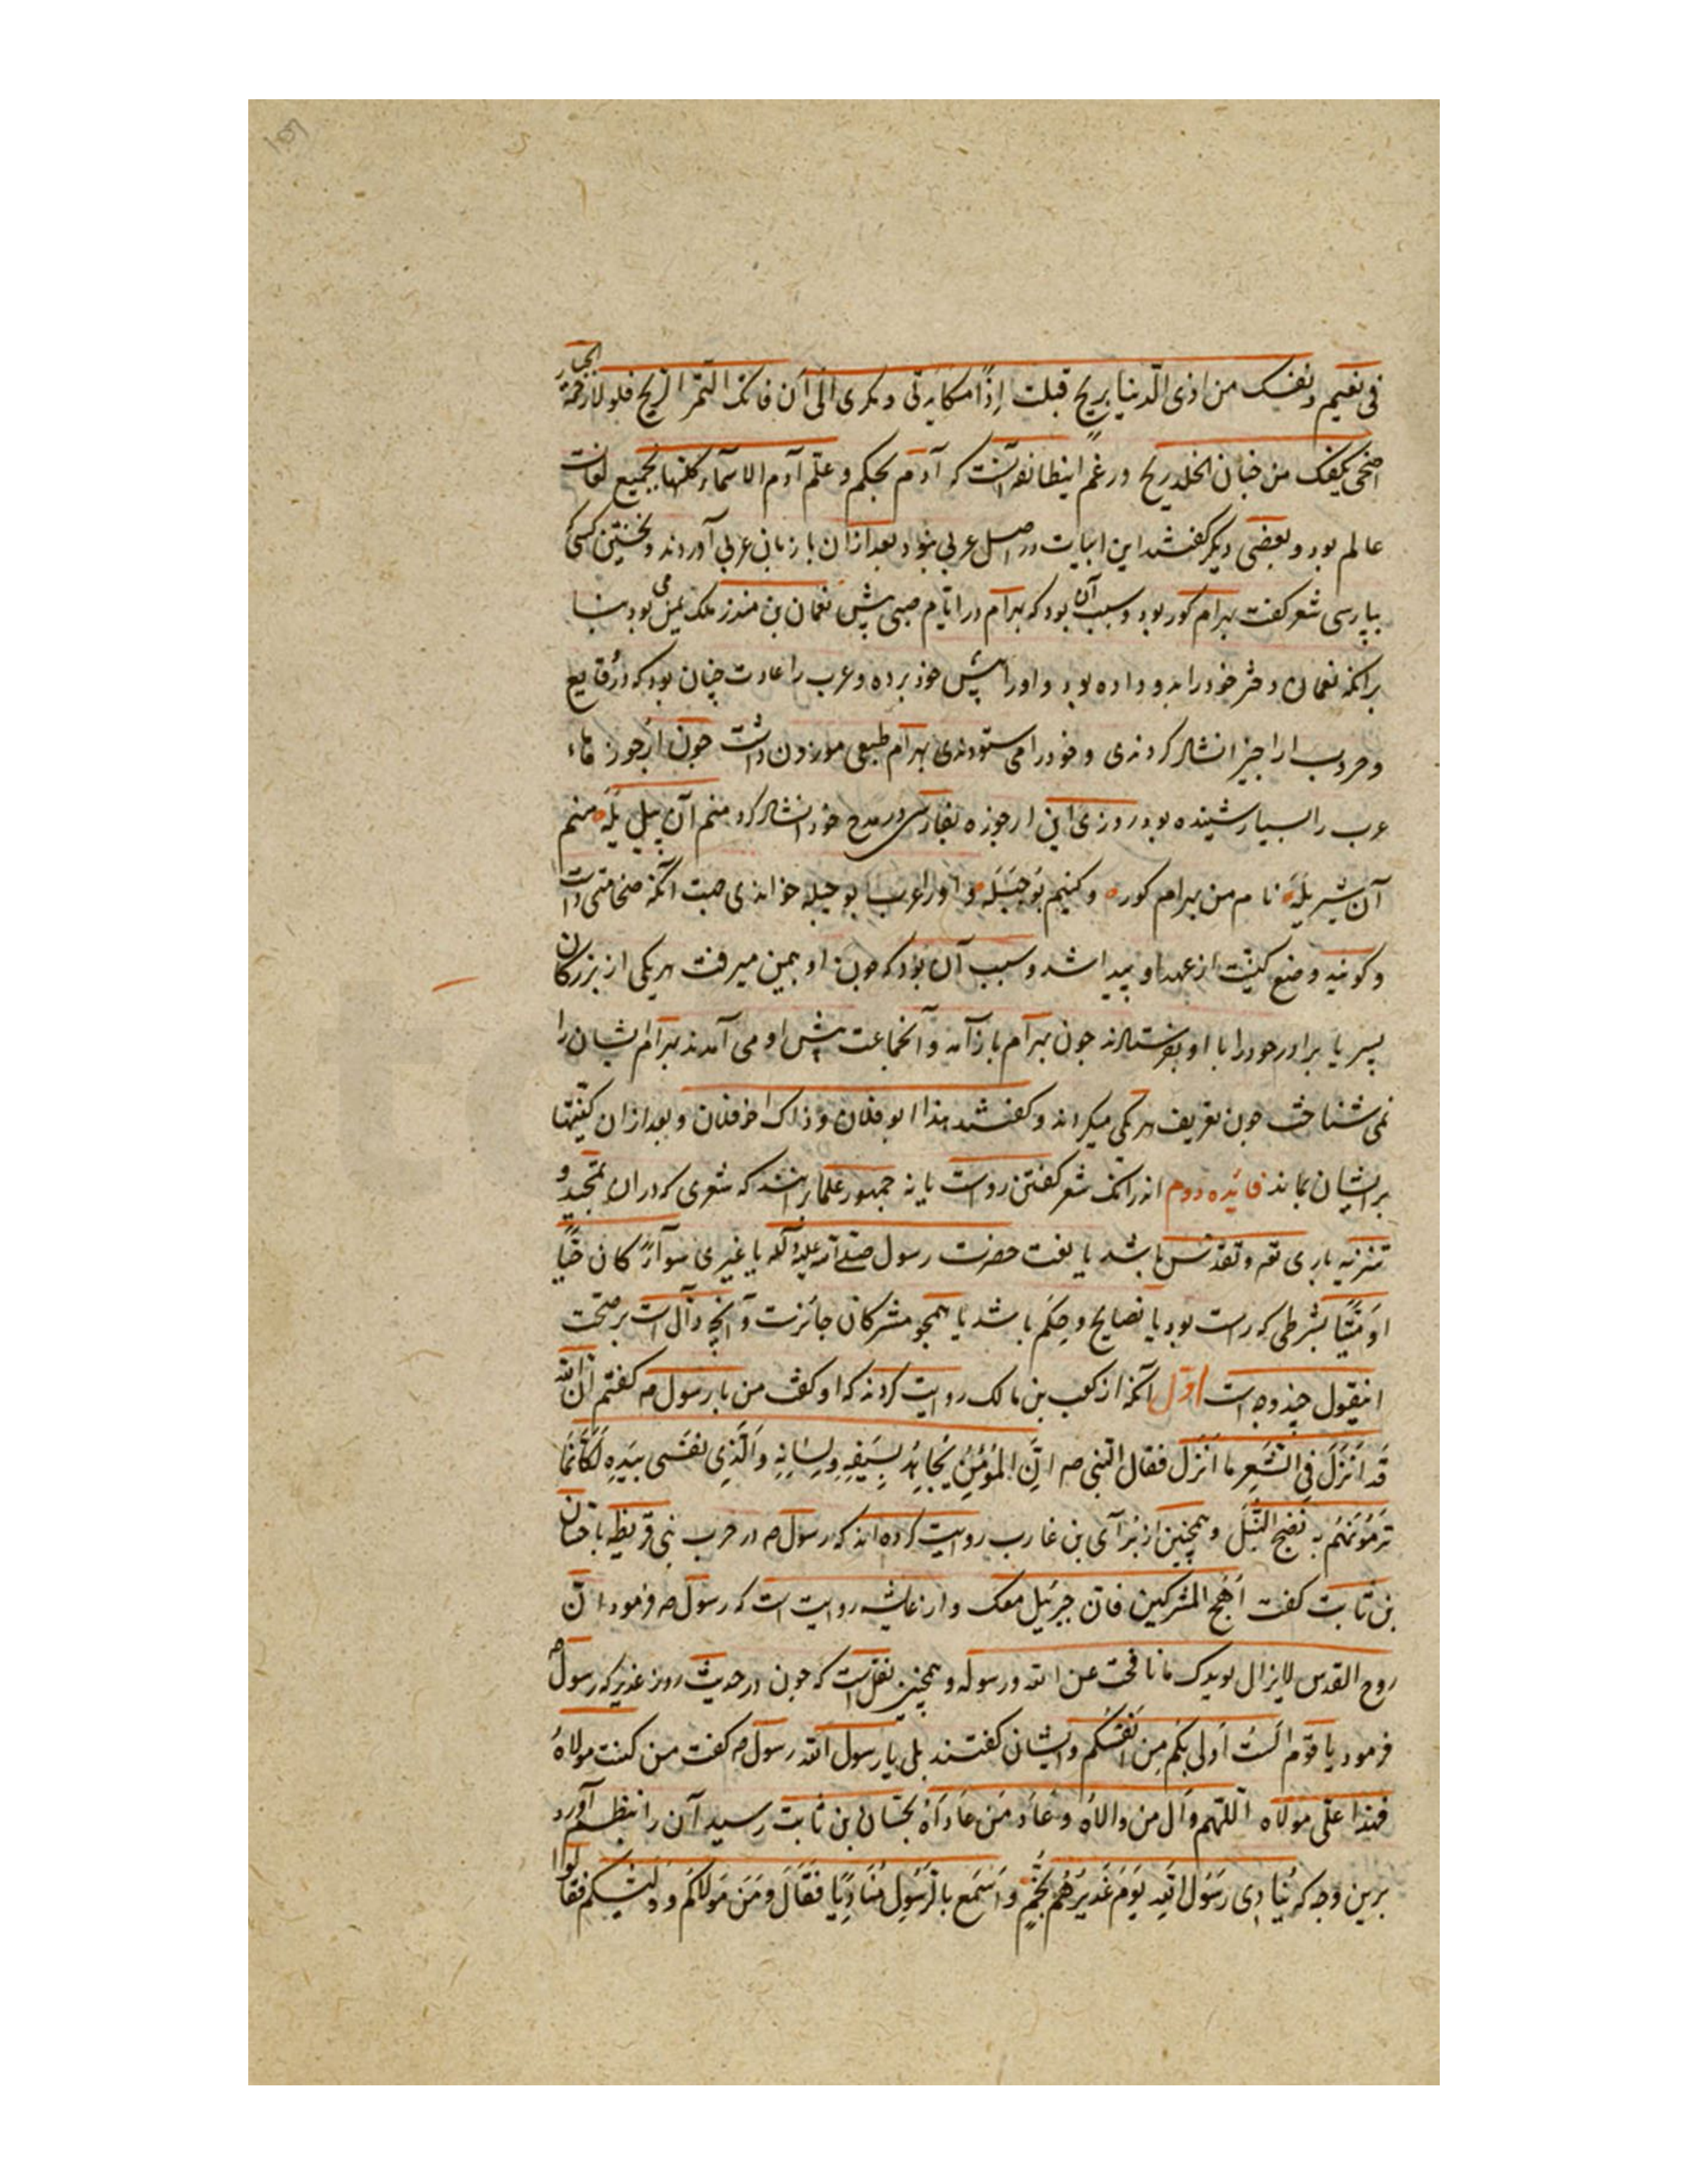 فی نعیم و نفسک من اذی الدنیا بریح قبلت اذًا مکایدتی و مکری الی ان فاتک الثمر الریح فلولا رحمة الجبار
اضحی بکفک من جنان الخلد ریح و زعم این طائفه آنست که آدم بحکم و علم آدم الاسماء کلها بجمیع لغات
عالم بود و بعضی دیگر گفتند این ابیات در اصل عربی نبود بعد از آن با زبان عربی آوردند و نخستین کسی که
بپارسی شعر گفت بهرام کور بود و سبب آن بود که بهرام در ایام صبی پیش نعمان بن منذر ملک یمن می بود بنا
برانکه نعمان دختر خود را بدو داده بود و او را پیش خود برده و عرب را عادت چنان بود که در وقایع
و حروب اراجیز انشاد کردندی و خود را می ستودندی بهرام طبعی موزون داشت چون ارجوزهاء
عرب را بسیار شنیده بود روزی این ارجوزه بفارسی در مدح خود انشاد کرد منم آن پیل یله منم
آن شیر یله نام من بهرام کوره و کنیتم بوجبله و او را عرب بوجبله خواندی جهت آنکه ضخامتی داشت
و کویند وضع کنیت از عهد او پیدا شد و سبب آن بود که چون او بیمن میرفت هر یکی از بزرکان
پسر یا برادر خود را با او بفرستادند چون بهرام باز آمد و آنجماعت پیش او می آمدند بهرام ایشان را
نمی شناخت چون تعریف هر یکی میکردند و گفتند هذا ابو فلان و ذاک اخو فلان و بعد از آن کنیتها
بر ایشان بماند فائده دوم اندر انک شعر کفتن رواست یا نه جمهور علما برانند که شعری که در ان تمجید و
تنزیه باری تعه و تقدس باشد یا نعت حضرت رسول صلی الله علیه و آله یا غیری سواءً کان حیًا
او میتًا بشرطی که راست بود یا نصایح و حکم باشد یا هجو مشرکان جائزست و آنچه دالست بر صحت
اینقول چند وجه است اول آنکه از کعب بن مالک روایت کردند که او کفت من با رسول صه کفتم ان الله
قد انزل فی الشعر ما انزل فقال النبی صه ان المؤمن یجاهد بسیفه و لسانه والذی نفسی بیده لکانما
ترمونهم به نضح النبل و همچنین از برآی بن عازب روایت کرده اند که رسول صه در حرب بنی قریظه با حسان
بن ثابت کفت اهج المشرکین فان جبرئیل معک و از عایشه روایت است که رسول صه فرمود ان
روح القدس لایزال یویدک ما نافحت عن الله و رسوله و همچنین نقل است که چون در حدیث روز غدیر که رسول صه
فرمود یا قوم الست اولی بکم من انفسکم و ایشان کفتند بلی یا رسول الله رسول صه کفت من کنت مولاه
فهذا علی مولاه اللهم وال من والاه و عاد من عاداه بحسان بن ثابت رسید آن را بنظم آورد
برین وجه که ینادی رسول الله یوم غدیرهم بخم و اسمع بالرسول منادیًا فقال و من مولاکم و ولیکم فقالوا